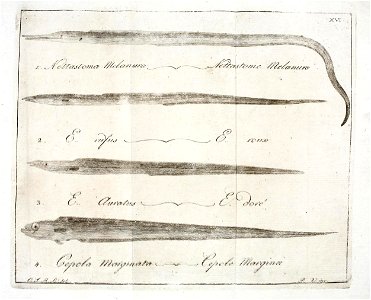 XVI.
1. Nettastoma Melanura Nettastome Melanure
2. E. rufus E. roux
3. E. Auratus E. doré
4. Cepola Marginata Cepole Marginée